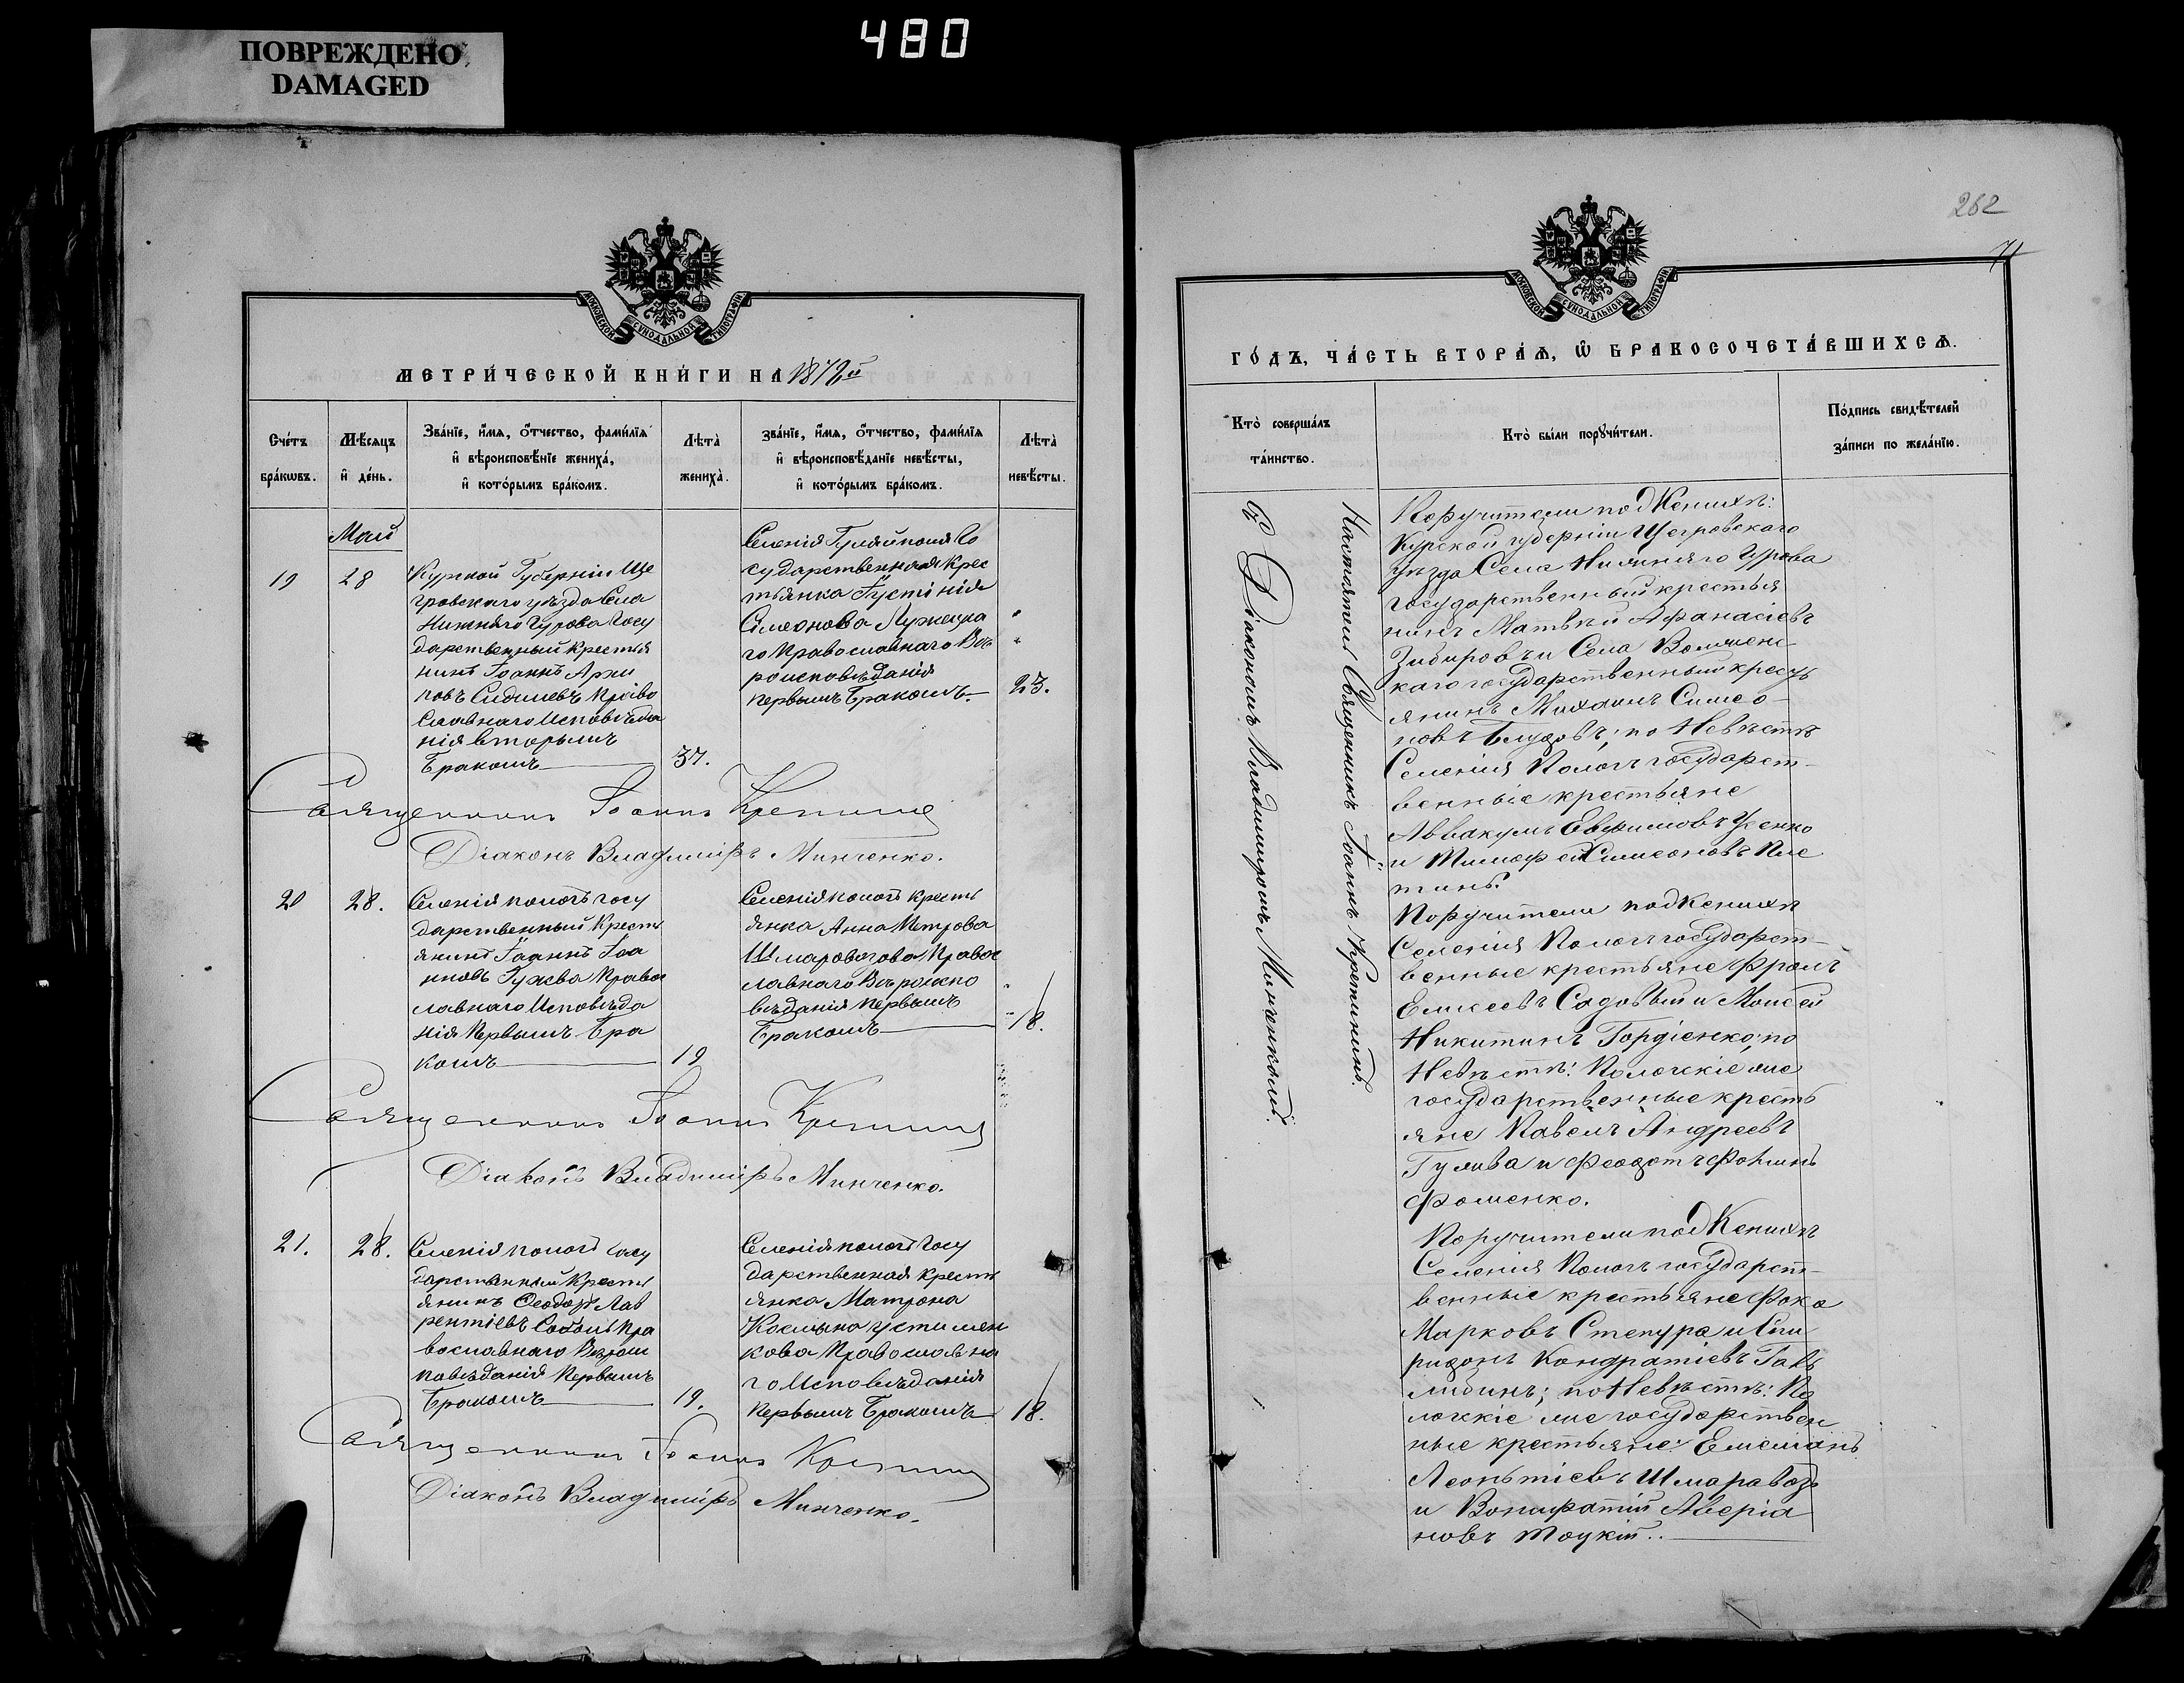 480
ПОВРЕЖДЕНО
DAMAGED
МОСКОВСКОЙ СѴНОДАЛЬНОЙ ТИПОГРАФІИ
МЕТРИ́ЧЕСКОЙ КНИ́ГИ НА 1872й
Сче́тъ бра́кѡвъ.
Мѣ́сяцъ и҆ де́нь.
Зва́нїе, и҆́мѧ, ѻ҆́тчество, фами́лїѧ
и҆ вѣроисповѣ́нїе жениха̀,
и҆ кото́рымъ бра́комъ.
Лѣта̀ жениха̀.
зва́нїе, и҆́мѧ, ѻ҆́тчество, фами́лїѧ
и҆ вѣроисповѣ́данїе невѣ́сты,
и҆ кото́рымъ бра́комъ.
Лѣта̀ невѣ́сты.
Май
19
28
Курской Губерніи Ще
гровскаго уѣзда Села
Нижняго Гурова Госу
дарственный Крестья
нинъ Іоаннъ Архи
повъ Православнаго Исповѣда
нія вторымъ
Бракомъ
37.
Селенія Гуляйполя Го
сударственная Крес
тьянка Іустинія
Симеонова
го Православнаго Вѣ
роисповѣданія
первымъ Бракомъ
23.
Священникъ Іоаннъ Кретининъ
Діаконъ Владиміръ Минченко.
20
28.
Селенія пологъ Госу
дарственный Кресть
янинъ Іоаннъ Іоа
нновъ Гуасва Правос
лавнаго Исповѣда
нія Первымъ Бра
комъ
19
Селенія пологъ кресть
янка Анна Петрова
Шмаровозова Правос
лавнаго Вѣроиспо
вѣданія первымъ
Бракомъ
18.
Священникъ Іоаннъ Кретининъ
Діаконъ Владиміръ Минченко.
21.
28.
Селенія пологъ Госу
дарственный Кресть
янинъ Ѳеодоръ Лав
рентіевъ Соболь Пра
вославнаго Вѣрои
повѣданія Первымъ
Бракомъ
19.
Селенія пологъ Госу
дарственная Кресть
янка Матрона
Космина Устимен
кова Православна
го Исповѣданія
первымъ Бракомъ
18.
Священникъ Іоаннъ Кретининъ
Діаконъ Владиміръ Минченко.
262
71
МОСКОВСКОЙ СѴНОДАЛЬНОЙ ТИПОГРАФІИ
ГО́ДЪ, ЧА́СТЬ ВТОРА́Ѧ, Ѡ҆ БРАКОСОЧЕТА́ВШИХСѦ.
Кто̀ соверша́лъ
та́инство.
Кто̀ бы́ли порꙋчи́тели.
По́дпись свидѣ́телей
за́писи по жела́нїю.
Настоятель Священникъ Іоаннъ Кретининъ.
Съ Діакономъ Владиміромъ Минченкомъ.
Поручители по Женихѣ:
Курской губерніи Щегровскаго
уѣзда Села Нижняго Гурова
государственный крестья
нинъ Матвѣй Афанасіевъ
Зибировъ и Села
каго государственный кресть
янинъ Михаилъ Симео-
новъ по Невѣстѣ
Селенія Пологъ государст-
венные крестьяне
Аввакумъ Евфимовъ Усенко
и Тимофей Симеоновъ Пле
тинь.
Поручители по Женихѣ
Селенія Пологъ государст-
венные крестьяне Фролъ
Елисеевъ Садовый и Моисей
Никитинъ Гордіенко; по
Невѣстѣ: Положскіе же
государственные кресть
яне Павелъ Андреевъ
Гулива и Феодотъ Фоминъ
Фоменко.
Поручители по Женихѣ
Селенія Пологъ государст-
венные крестьяне Фока
Марковъ Степура и Спи
ридонъ Кондратіевъ Гав
; по Невѣстѣ: По
ложскіе же государствен
ные крестьяне: Емеліанъ
Леонтіевъ Шмаравозъ
и Вонифатій Аверіа
новъ Тоцкій.